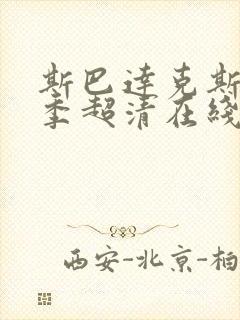 斯巴達克斯
季超清在綫
西安-北京-柏